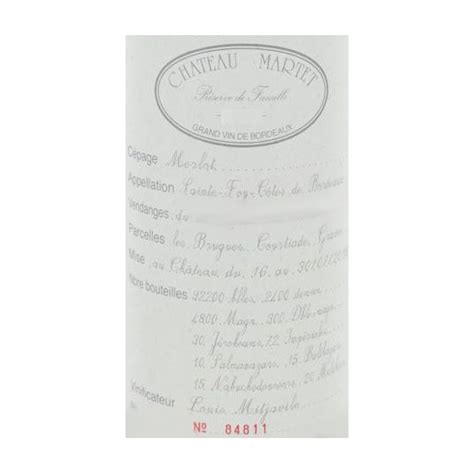 CHATEAU MARTET
Réserve de Famille
GRAND VIN DE BORDEAUX
Cépage Merlot
Appellation Sainte-Foy-Côtes de Bordeaux
Vendanges du
Parcelles les Brugues, Graves
Mise au Château du 16 au
Nbre bouteilles 92200 btles, 2400 demies
4800 Magn. 300 Dble-magn
30 Jéroboams, 72 Impériales
10 Salmanazars, 15 Balthazars
15 Nabuchodonosors, 20 Melchiors
Vinificateur Louis Mitjavile
Nº 84811